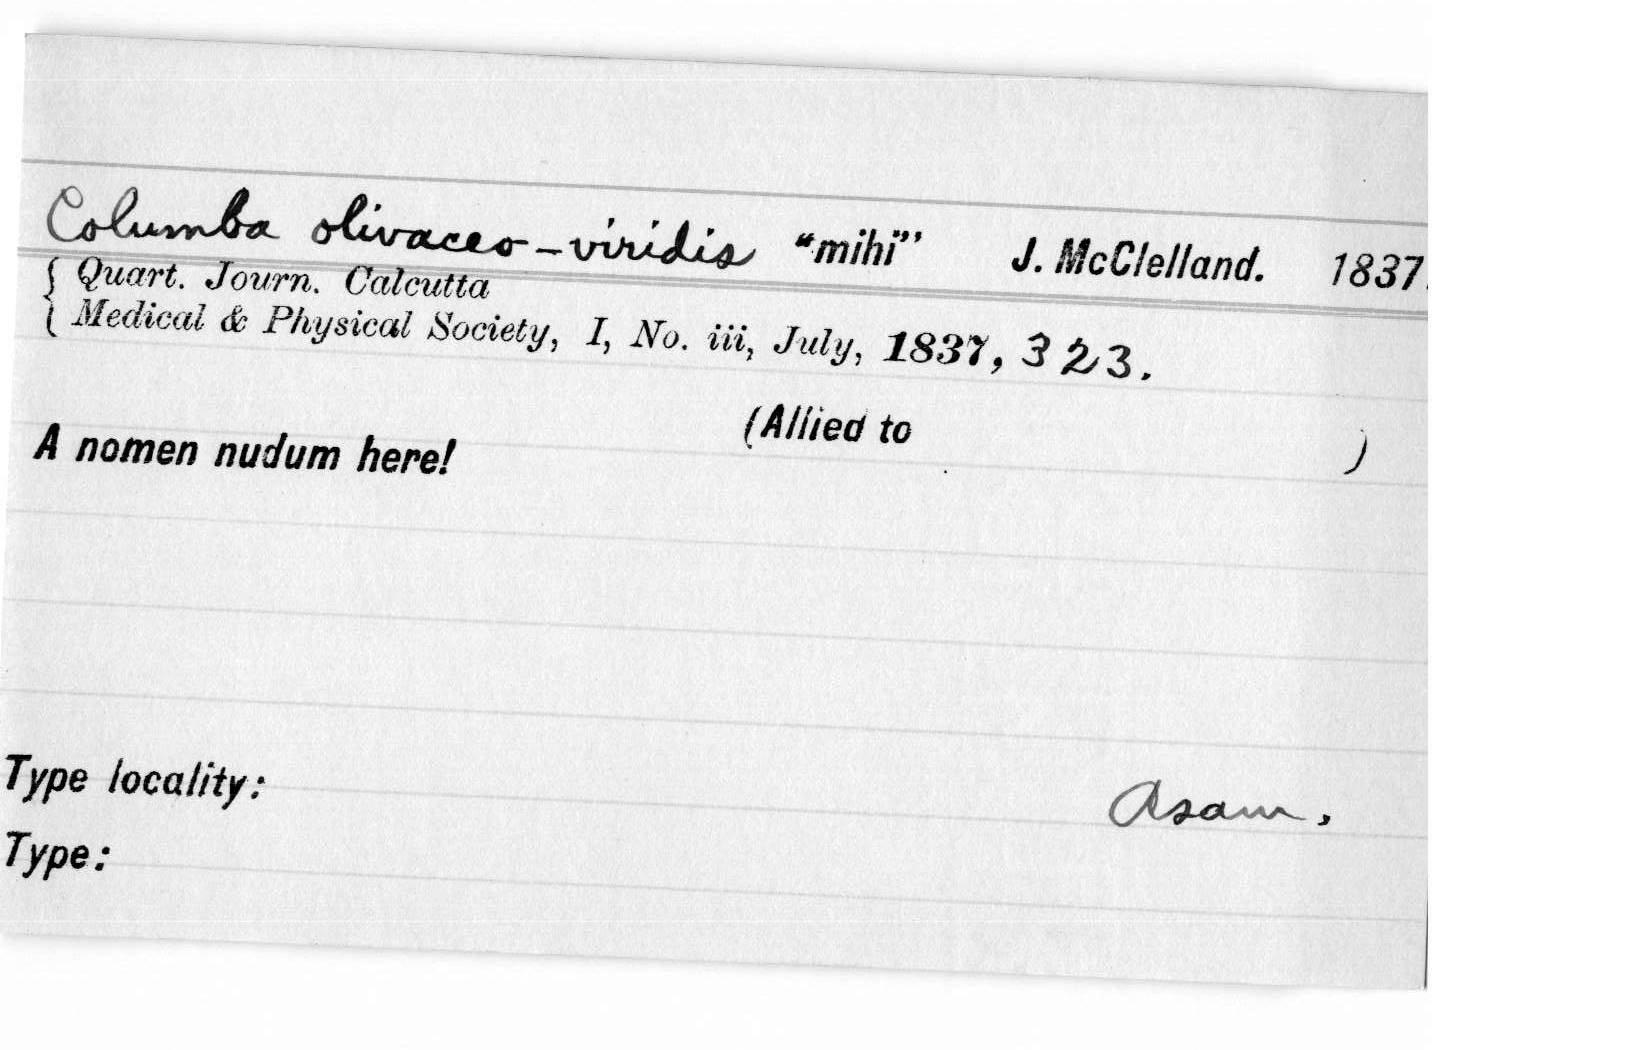 Columba olivaceo-viridis "mihi" J. McClelland. 1837.
{ Quart. Journ. Calcutta
{ Medical & Physical Society, I, No. iii, July, 1837, 323.
(Allied to )
A nomen nudum here!
Type locality: Asam.
Type: